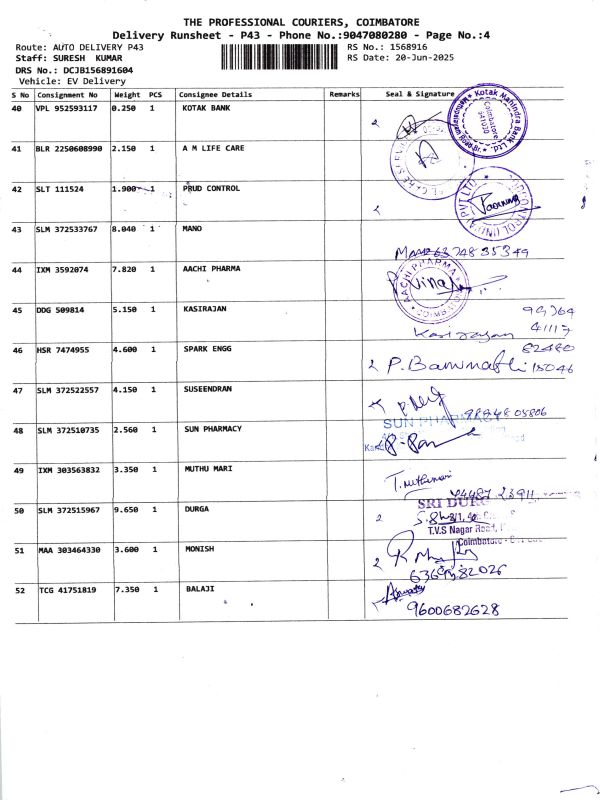 THE PROFESSIONAL COURIERS, COIMBATORE
Delivery Runsheet - P43 - Phone No.:9047080280 - Page No.:4
Route: AUTO DELIVERY P43 RS No.: 1568916
Staff: SURESH KUMAR RS Date: 20-Jun-2025
DRS No.: DCJB156891604
Vehicle: EV Delivery
S No Consignment No Weight PCS Consignee Details Remarks Seal & Signature
40 VPL 952593117 0.250 1 KOTAK BANK
Kotak Mahindra Bank Ltd.
Coimbatore
641030
41 BLR 2250608990 2.150 1 A M LIFE CARE
42 SLT 111524 1.900 1 PRUD CONTROL
43 SLM 372533767 8.040 1 MANO
Mano 6374835349
44 IXM 3592074 7.820 1 AACHI PHARMA
AACHI PHARMA
45 DDG 509814 5.150 1 KASIRAJAN
Kasirajan
46 HSR 7474955 4.600 1 SPARK ENGG
15046
47 SLM 372522557 4.150 1 SUSEENDRAN
48 SLM 372510735 2.560 1 SUN PHARMACY
SUN PHARMACY
49 IXM 303563832 3.350 1 MUTHU MARI
T.muthumari
50 SLM 372515967 9.650 1 DURGA
SRI DURG
T.V.S Nagar Road,
Coimbatore -
51 MAA 303464330 3.600 1 MONISH
52 TCG 41751819 7.350 1 BALAJI
9600682628